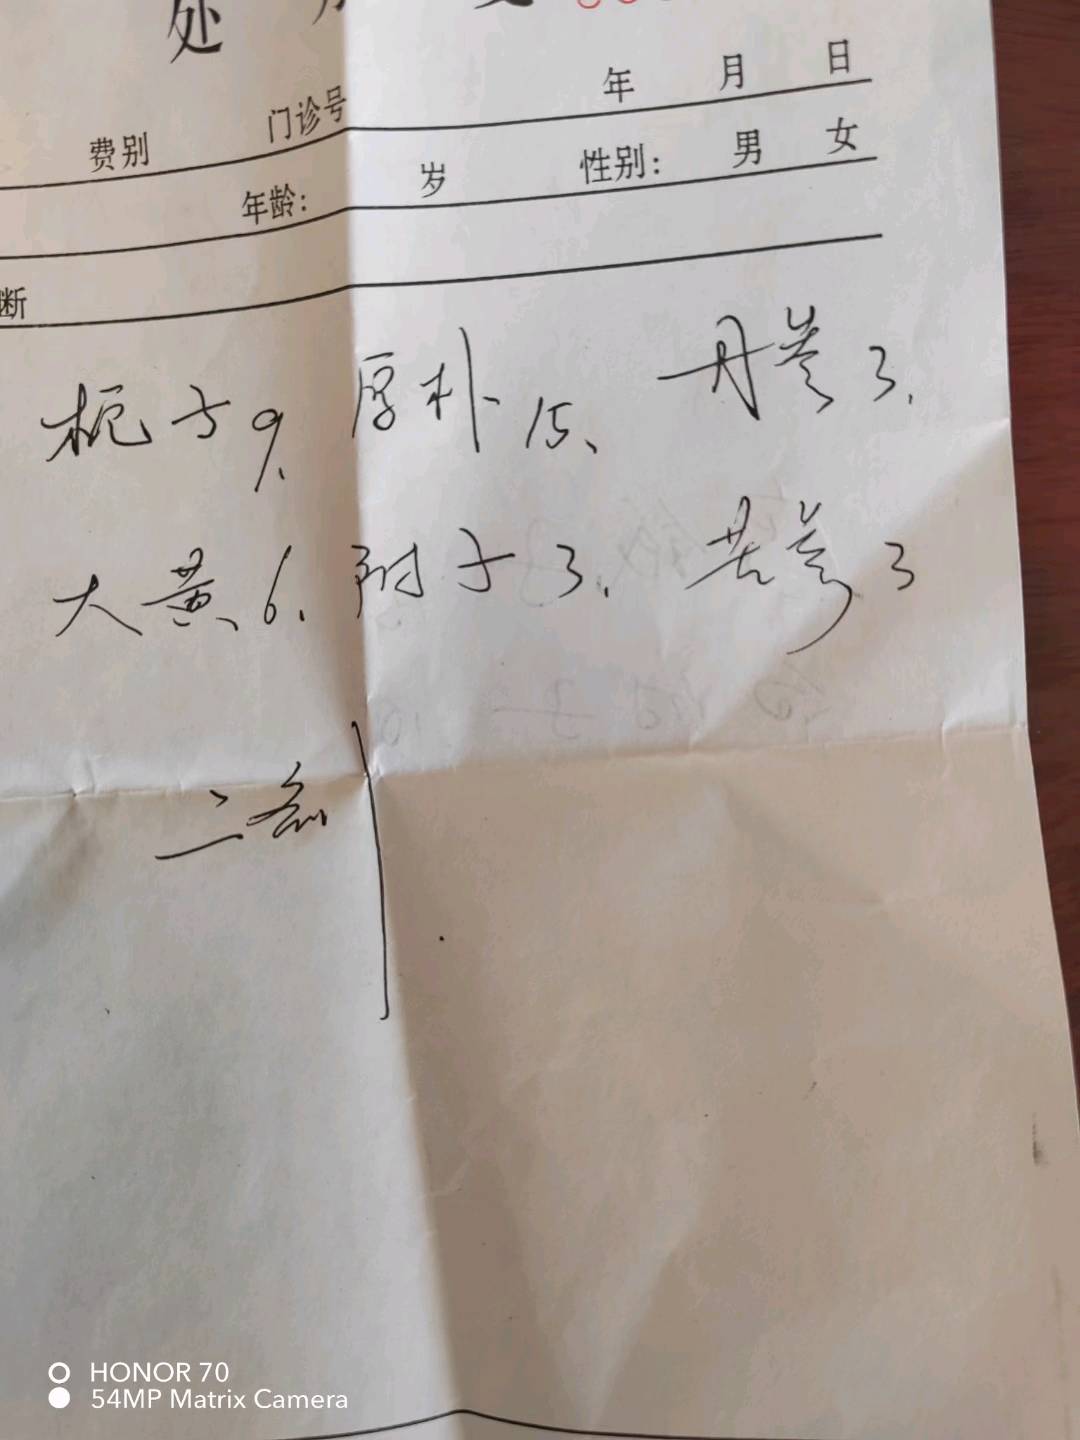 处
费别 门诊号 年 月 日
年龄: 岁 性别: 男 女
断
栀子9、 厚朴15、 丹参3、
大黄、6、 附子3、 苦参3
HONOR 70
54MP Matrix Camera